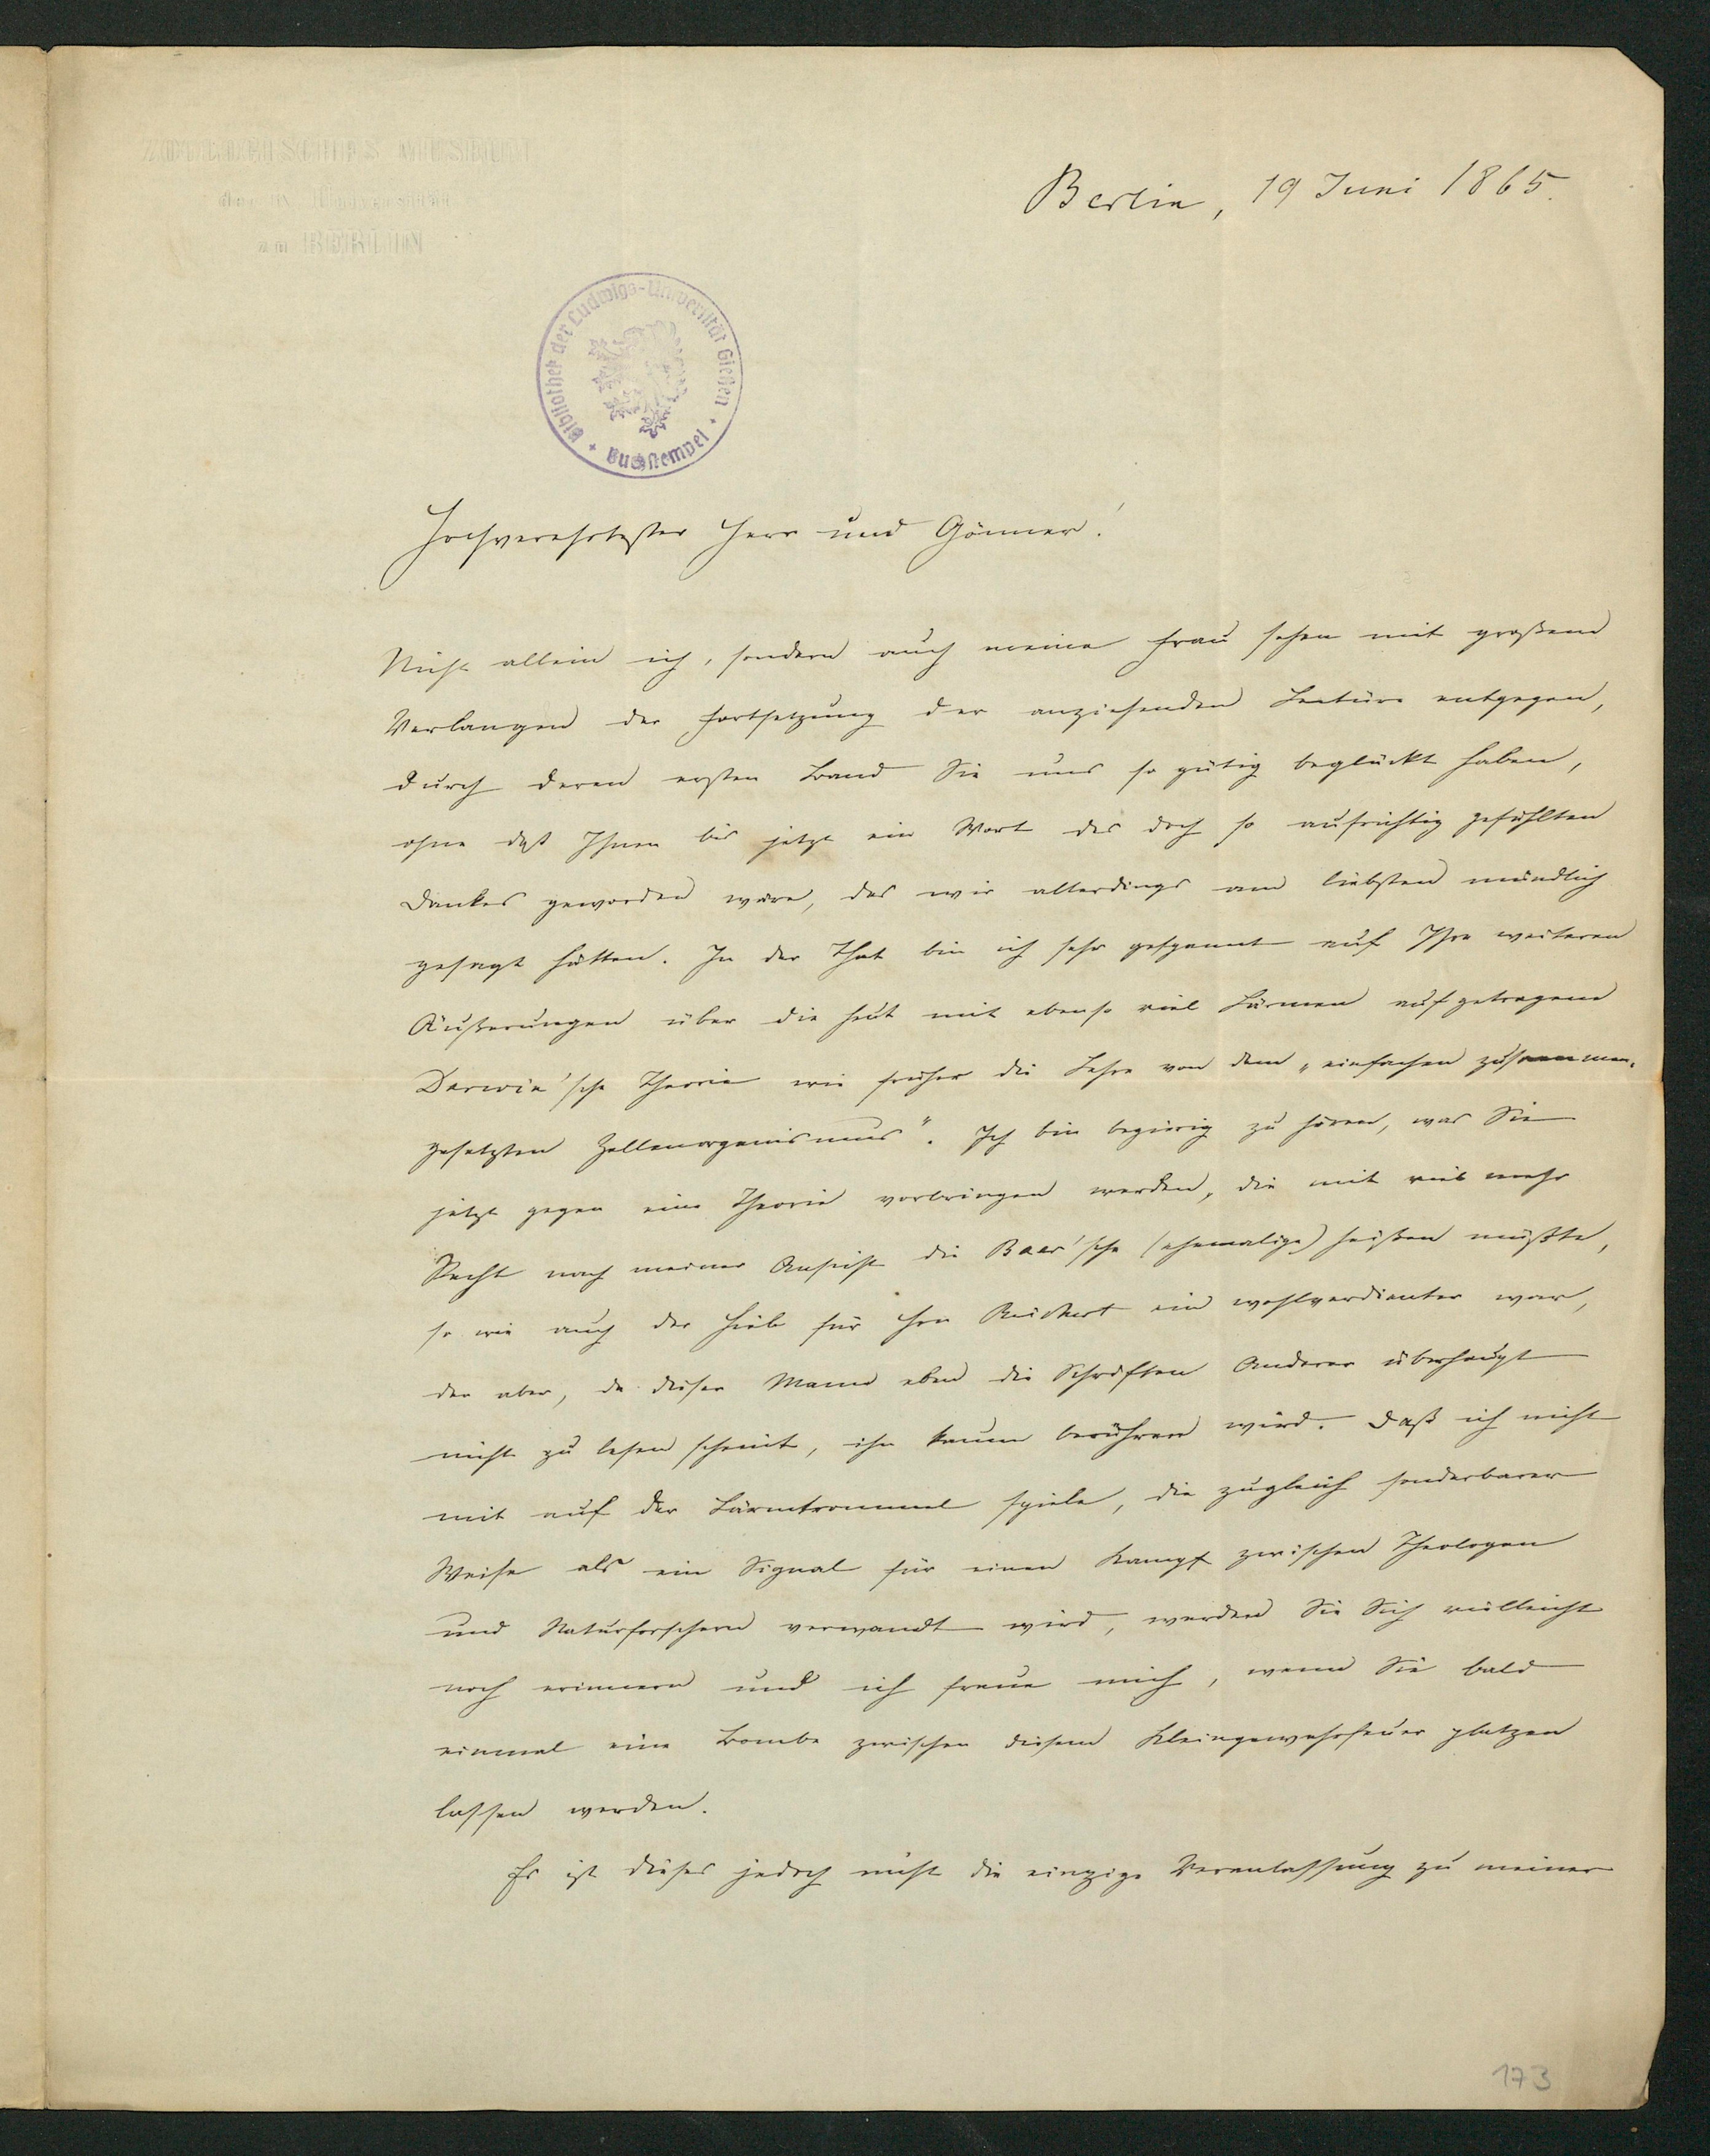 ZOOLOGISCHES MUSEUM
der K. Universität
zu BERLIN
Berlin, 19 Juni 1865.
Bibliothek der Ludwigs-Universität Gießen + Buchstempel +
Hochverehrtester Herr und Gönner!
Nicht allein ich, sondern auch meine Frau sehen mit großem
Verlangen der Fortsetzung der anziehenden Lectüre entgegen,
durch deren ersten Band Sie uns so gütig beglückt haben,
ohne daß Ihnen bis jetzt ein Wort des doch so aufrichtig gefühlten
Dankes geworden wäre, das wir allerdings am liebsten mündlich
gesagt hätten. In der That bin ich sehr gespannt auf Ihre weiteren
Äußerungen über die heut mit ebenso viel Lärmen aufgetragene
Darwin'sche Theorie wie früher die Lehre von dem „einfachen zusammen-
gesetzten Zellenorganismus". Ich bin begierig zu hören, was Sie
jetzt gegen eine Theorie vorbringen werden, die mit viel mehr
Recht nach meiner Ansicht die Baer'sche (ehemalige) heißen müßte,
so wie auch der Hieb für Hrn Reichert ein wohlverdienter war,
der aber, da dieser Mann eben die Schriften Anderer überhaupt
nicht zu lesen scheint, ihn kaum berühren wird. Daß ich nicht
mit auf der Lärmtrommel spiele, die zugleich sonderbarer
Weise als ein Signal für einen Kampf zwischen Theologen
und Naturforschern verwandt wird, werden Sie Sich vielleicht
noch erinnern und ich freue mich, wenn Sie bald
einmal eine Bombe zwischen diesem Kleingewehrfeuer platzen
lassen werden.
Es ist dieses jedoch nicht die einzige Veranlassung zu meiner
173